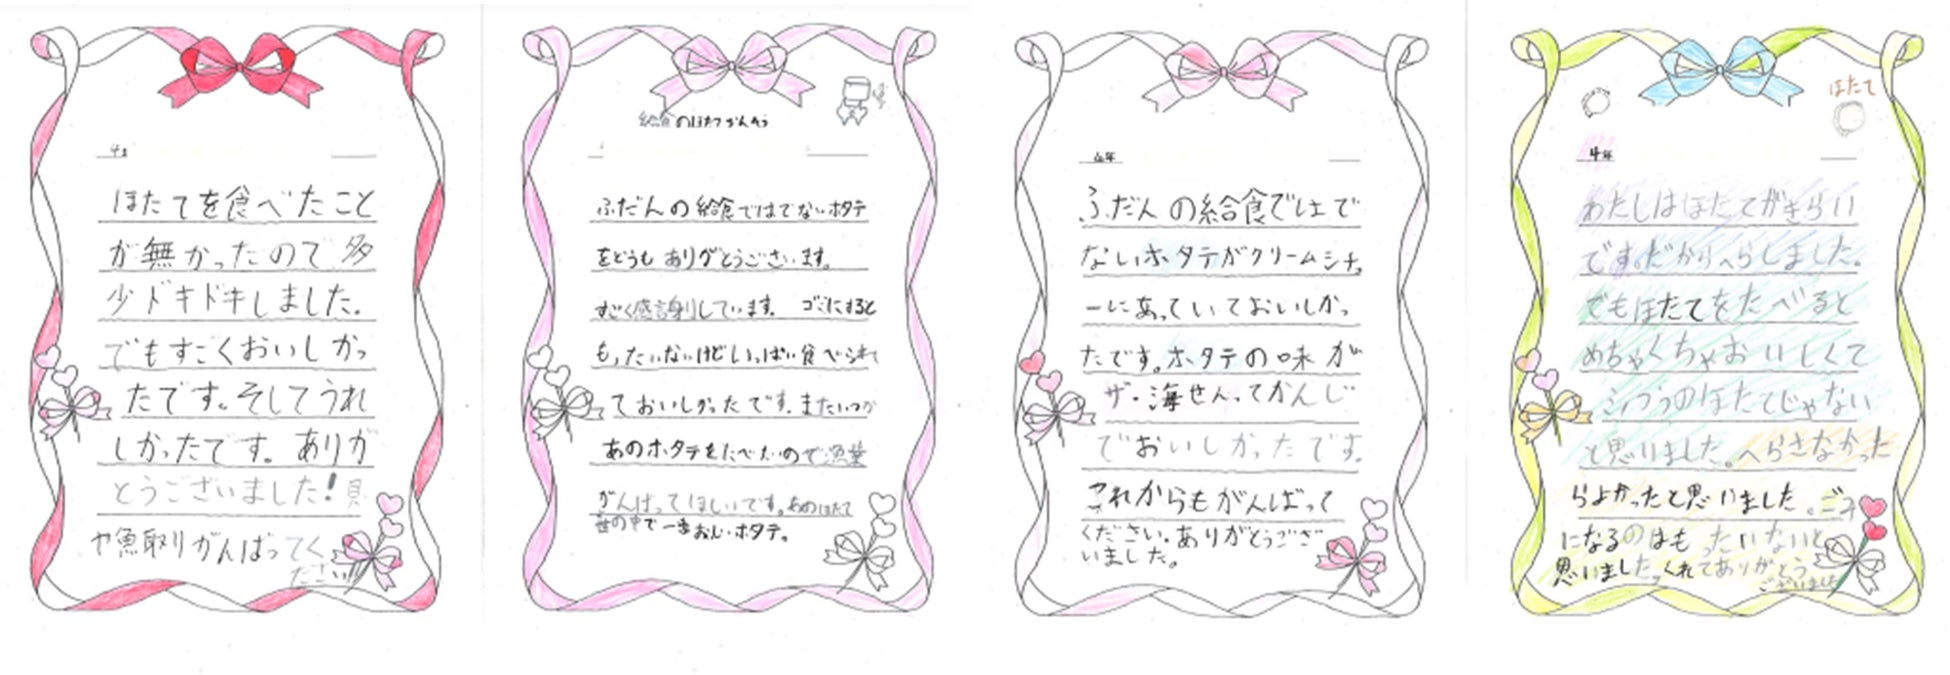 4年
ほたてを食べたこと
が無かったので多
少ドキドキしました。
でもすごくおいしかっ
たです。そしてうれ
しかったです。ありが
とうございました!貝
や魚取りがんばってく
ださい!!
給食のほたてかんそう
ふだんの給食ではでないホタテ
をどうもありがとうございます。
すごく感謝しています。ゴミにすると
もったいないけどいっぱい食べられ
ておいしかったです。またいつか
あのホタテをたべたいので漁業
がんばってほしいです。あのほたて
世の中で一番おいしいホタテ。
4年
ふだんの給食ではで
ないホタテがクリームシチュ
ーにあっていておいしかっ
たです。ホタテの味が
ザ・海せんってかんじ
でおいしかったです。
これからもがんばって
ください。ありがとうござ
いました。
ほたて
4年
わたしはほたてがきらい
です。だからへらしました。
でもほたてをたべると
めちゃくちゃおいしくて
ふつうのほたてじゃない
と思いました。へらさなかった
らよかったと思いました。ごみ
になるのはもったいないと
思いました。くれてありがとう
ございました